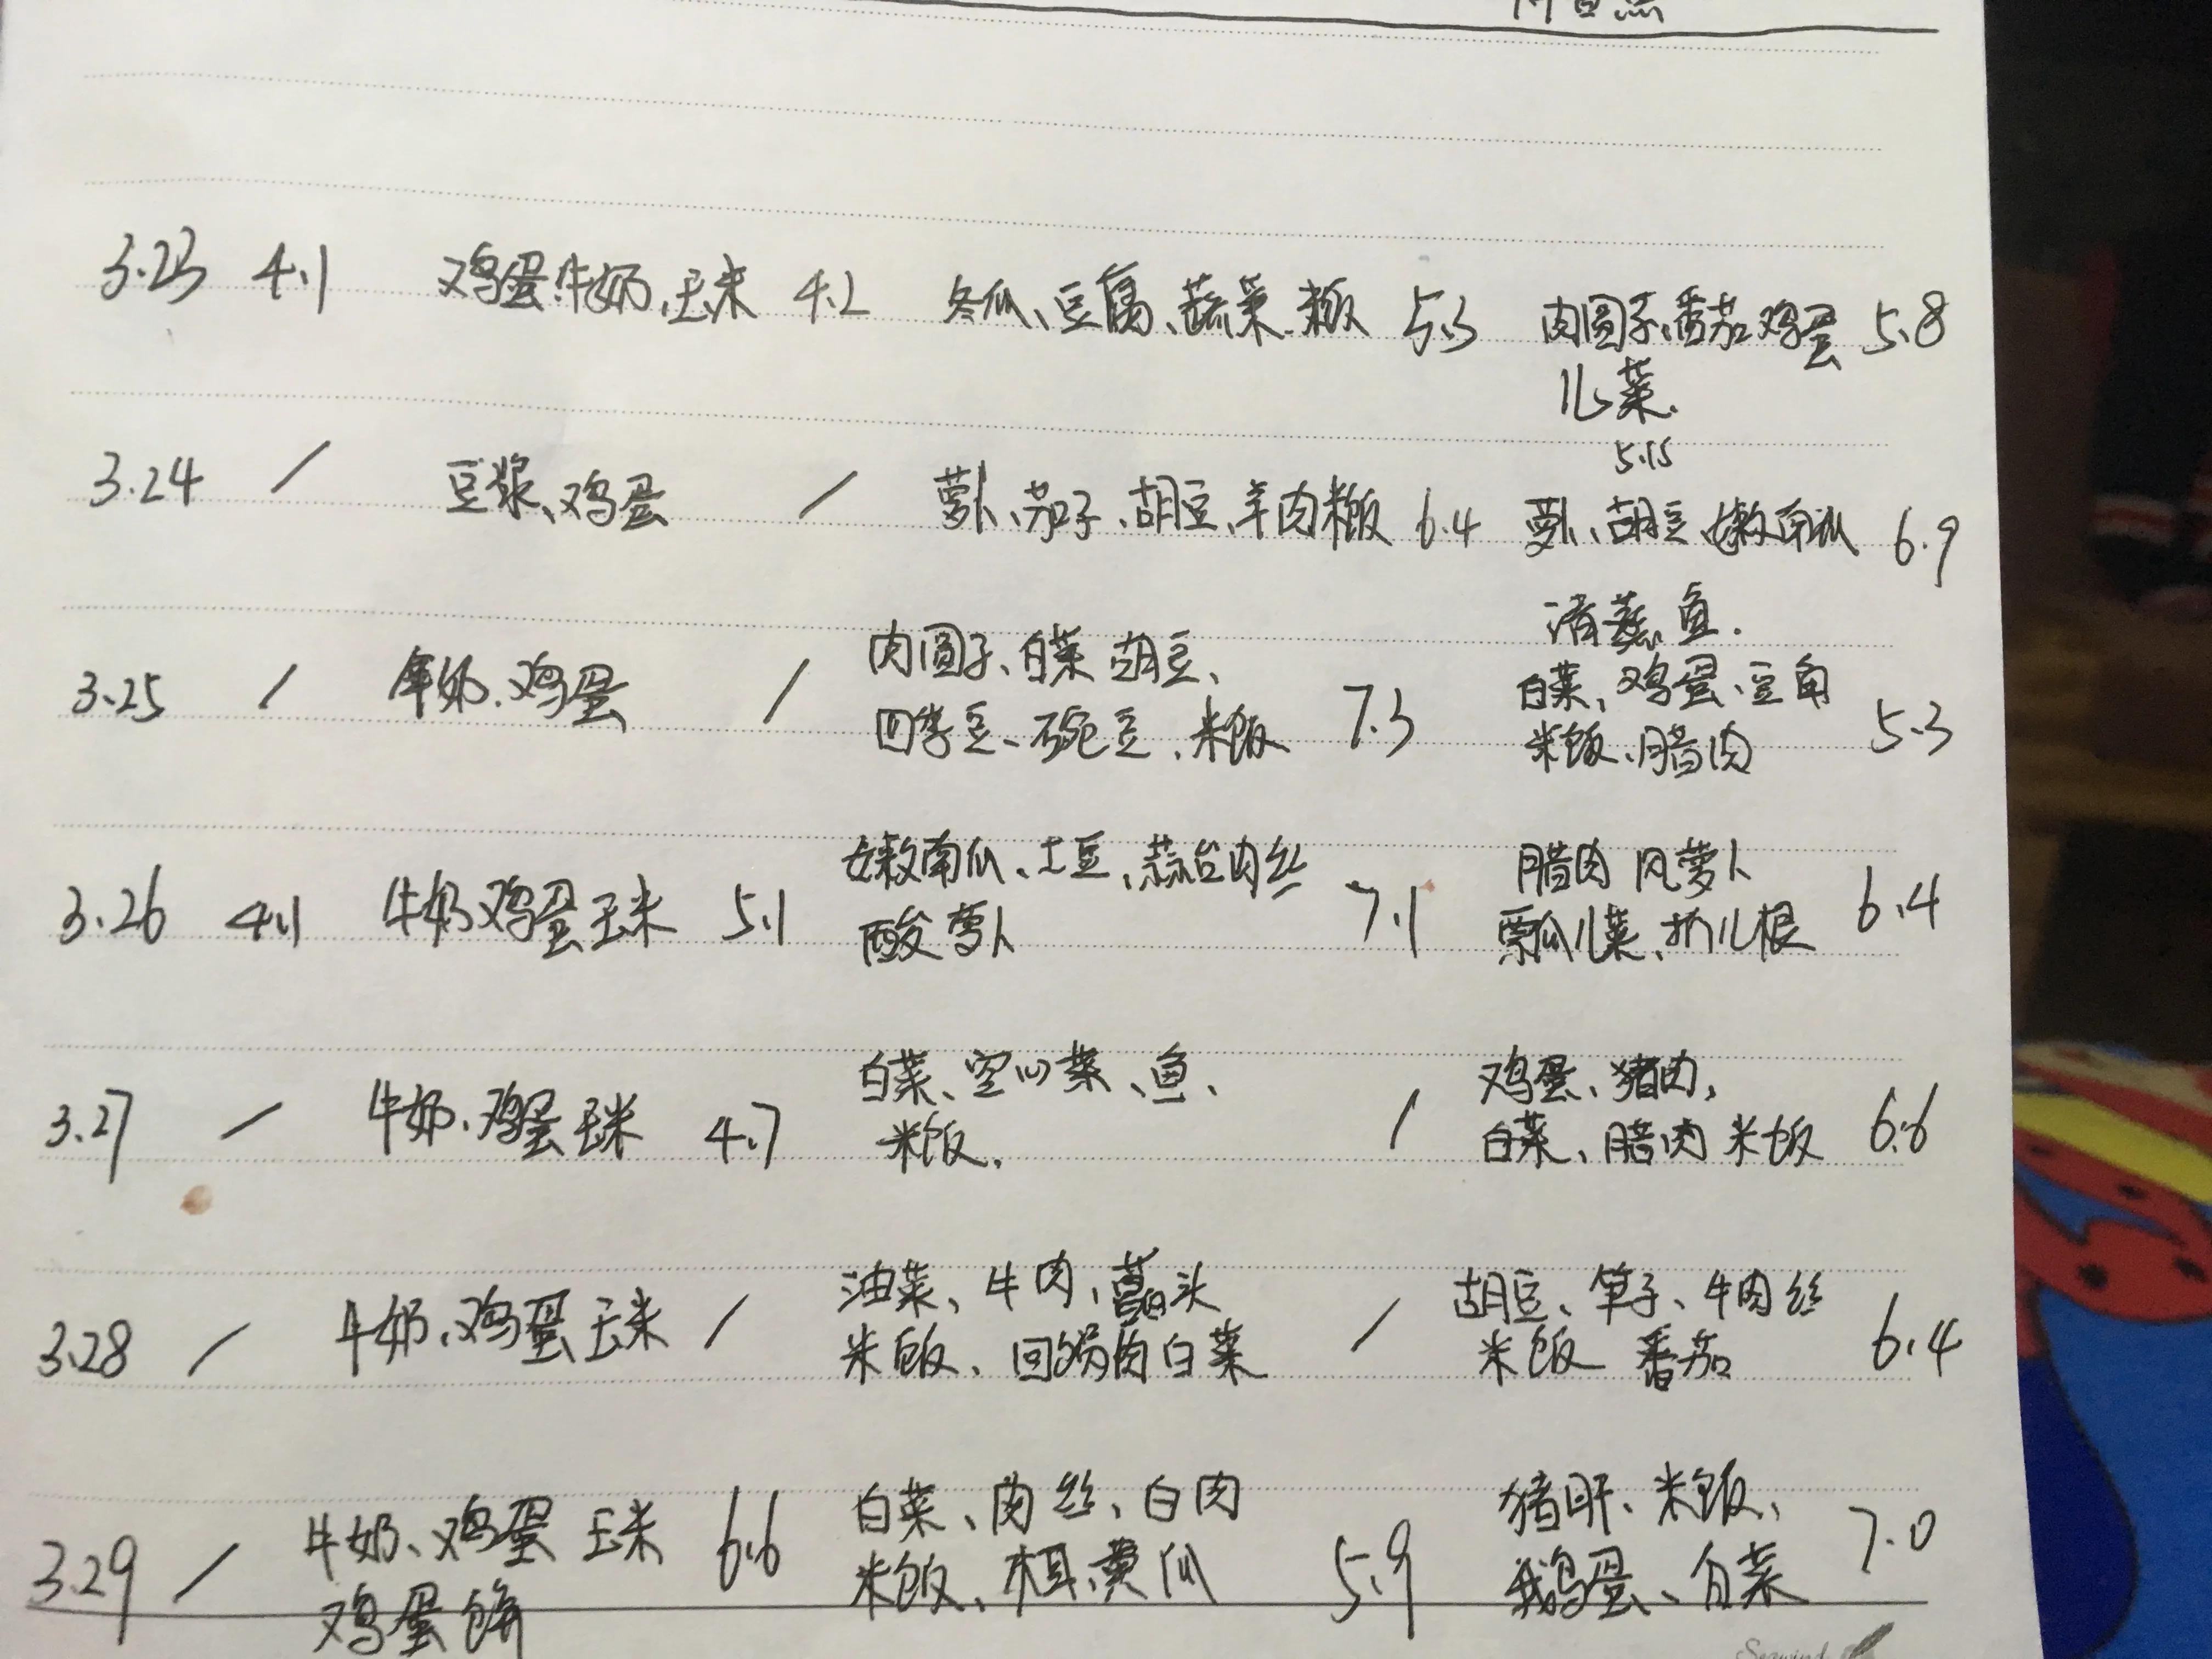 3.23 4.1 鸡蛋.牛奶.玉米 4.2 冬瓜、豆腐、蔬菜.米饭 5.3 肉圆子、番茄鸡蛋 5.8
儿菜.
5.15
3.24 / 豆浆、鸡蛋 / 萝卜、茄子、胡豆、羊肉米饭 6.4 萝卜、胡豆、嫩南瓜 6.9
清蒸鱼.
肉圆子、白菜 胡豆、
3.25 / 牛奶.鸡蛋 / 四季豆、豌豆、米饭 7.3 白菜、鸡蛋、豆角
米饭、腊肉 5.3
嫩南瓜、土豆、蒜台肉丝 腊肉 风萝卜
3.26 4.1 牛奶鸡蛋玉米 5.1 酸萝卜 7.1 瓢儿菜、折儿根 6.4
白菜、空心菜、鱼、 鸡蛋、猪肉,
3.27 / 牛奶、鸡蛋 玉米 4.7 米饭. / 白菜、腊肉 米饭 6.6
油菜、牛肉、头 胡豆、笋子、牛肉丝
3.28 / 牛奶.鸡蛋 玉米 / 米饭、回锅肉白菜 / 米饭 番茄 6.4
白菜、肉丝、白肉 猪肝、米饭、
3.29 / 牛奶、鸡蛋 玉米 6.6 米饭、木耳、黄瓜 5.9 鹅蛋、白菜 7.0
鸡蛋饼